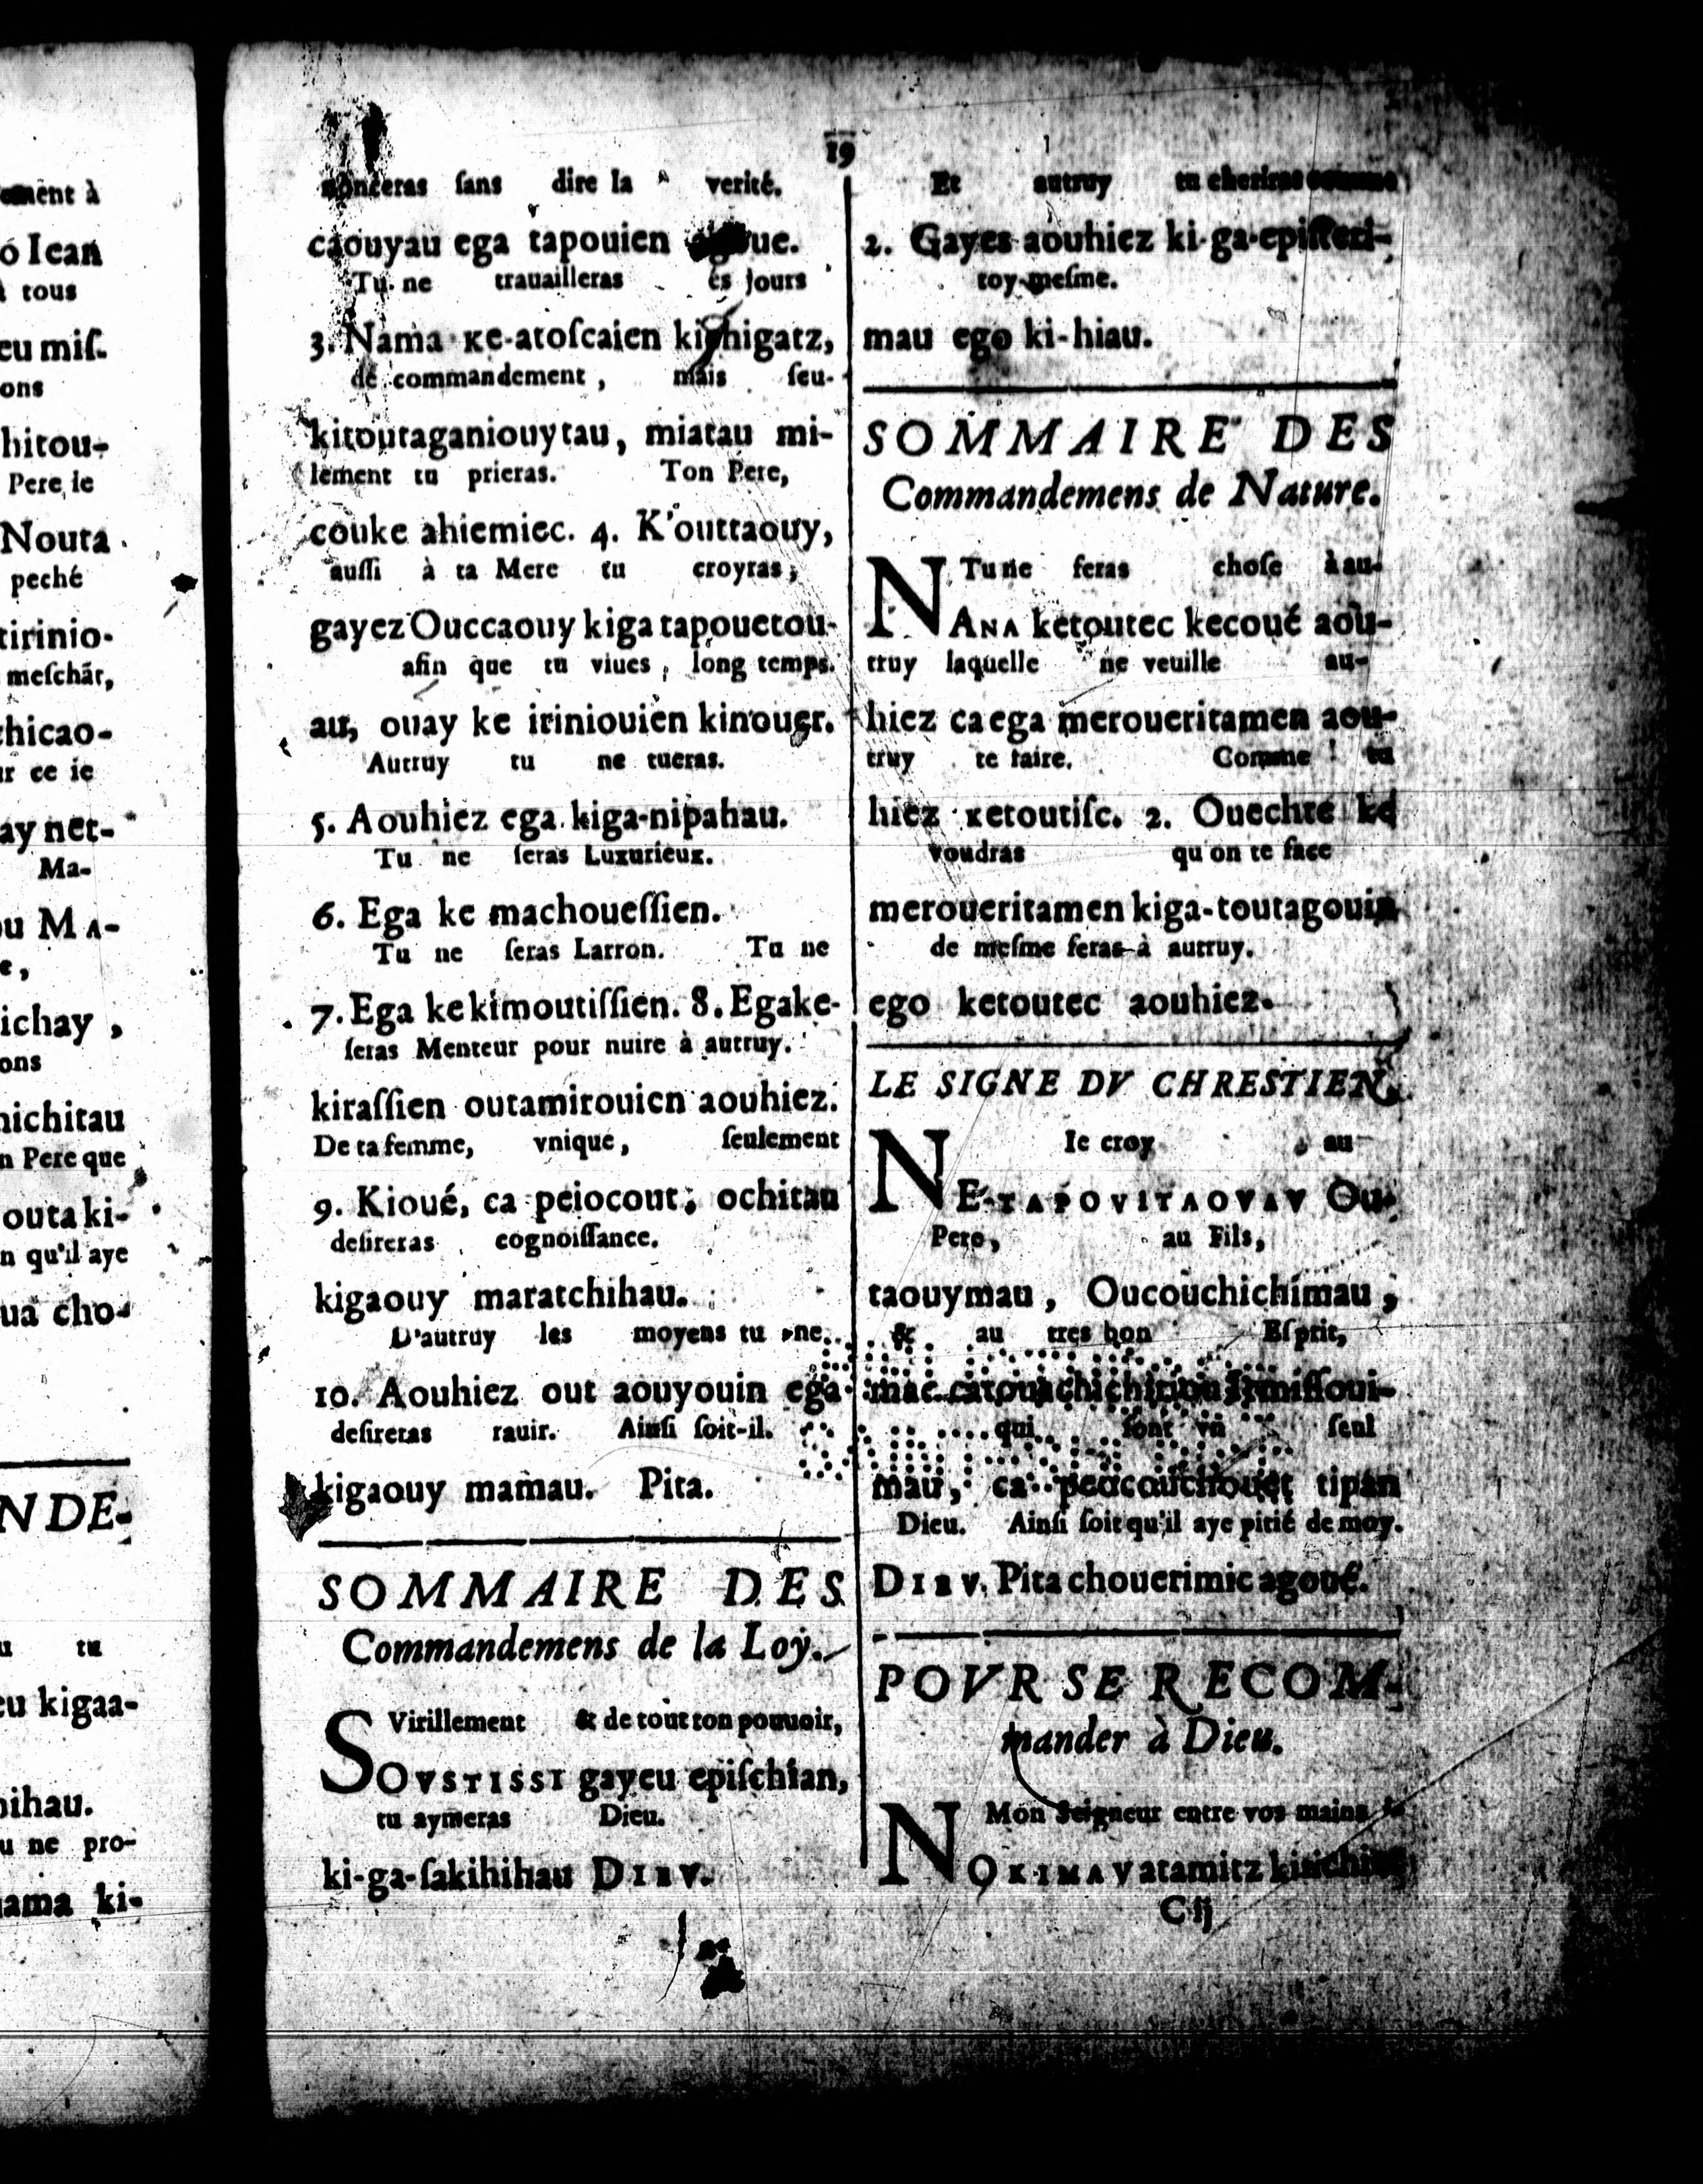 ement à
ó Iean
à tous
eu miſ-
ons
hitou-
Pere le
Nouta
peché
tirinio-
meſchãt,
chicao-
ur ce ie
ay net-
Ma-
ou MA-
e,
ichay ,
ons
nichitau
n Pere que
outa ki-
n qu'il aye
ua cho-
NDE-
u tu
eu kigaa-
bihau.
u ne pro-
nama ki-
19
nonceras ſans dire la verité.
caouyau ega tapouien
Tu ne trauailleras és jours
3. Nama ke-atoſcaien kichigatz,
de commandement , mais ſeu-
kitoutaganiouytau, miatau mi-
lement tu prieras. Ton Pere,
couke ahiemiec. 4. K'outtaouy,
auſſi à ta Mere tu croyras,
gayez Ouccaouy kiga tapouetou-
afin que tu viues, long temps.
au, ouay ke iriniouien kinouer.
Autruy tu ne tueras.
5. Aouhiez ega kiga-nipahau.
Tu ne ſeras Luxurieux.
6. Ega ke machoueſſien.
Tu ne ſeras Larron. Tu ne
7. Ega ke kimoutiſſien. 8. Egake-
ſeras Menteur pour nuire à autruy.
kiraſſien outamirouien aouhiez.
De ta femme, vnique, ſeulement
9. Kioué, ca peiocout, ochitau
deſireras cognoiſſance.
kigaouy maratchihau.
D'autruy les moyens tu ne
10. Aouhiez out aouyouin ega
deſireras rauir. Ainſi ſoit-il.
kigaouy mamau. Pita.
SOMMAIRE DES
Commandemens de la Loy.
Virillement & de tout ton pouuoir,
SOVSTISSI gayeu epiſchian,
tu aymeras Dieu.
ki-ga-ſakihihau DIEV.
Et autruy tu cheriras
2. Gayes aouhiez ki-ga-epiſteri-
toy-meſme.
mau ego ki-hiau.
SOMMAIRE DES
Commandemens de Nature.
Tu ne feras choſe à au-
NANA ketoutec kecoué aou-
truy laquelle ne veuille au-
hiez ca ega meroueritamen aou-
truy te faire. Comme tu
hiez ketoutiſc. 2. Ouechte ke
voudras qu on te face
meroueritamen kiga-toutagouin
de meſme feras à autruy.
ego ketoutec aouhiez.
LE SIGNE DV CHRESTIEN.
Ie croy au
NE-TAPOVITAOVAV Ou-
Pere, au Fils,
taouymau , Oucouchichimau ,
& au tres bon Eſprit,
mac
qui ſont vn ſeul
mau, ca tipan
Dieu. Ainſi ſoit qu'il aye pitié de moy.
DIEV. Pita chouerimic agoué.
POVR SE RECOM-
mander à Dieu.
Mon Seigneur entre vos mains
NOKIMAV atamitz
C ij